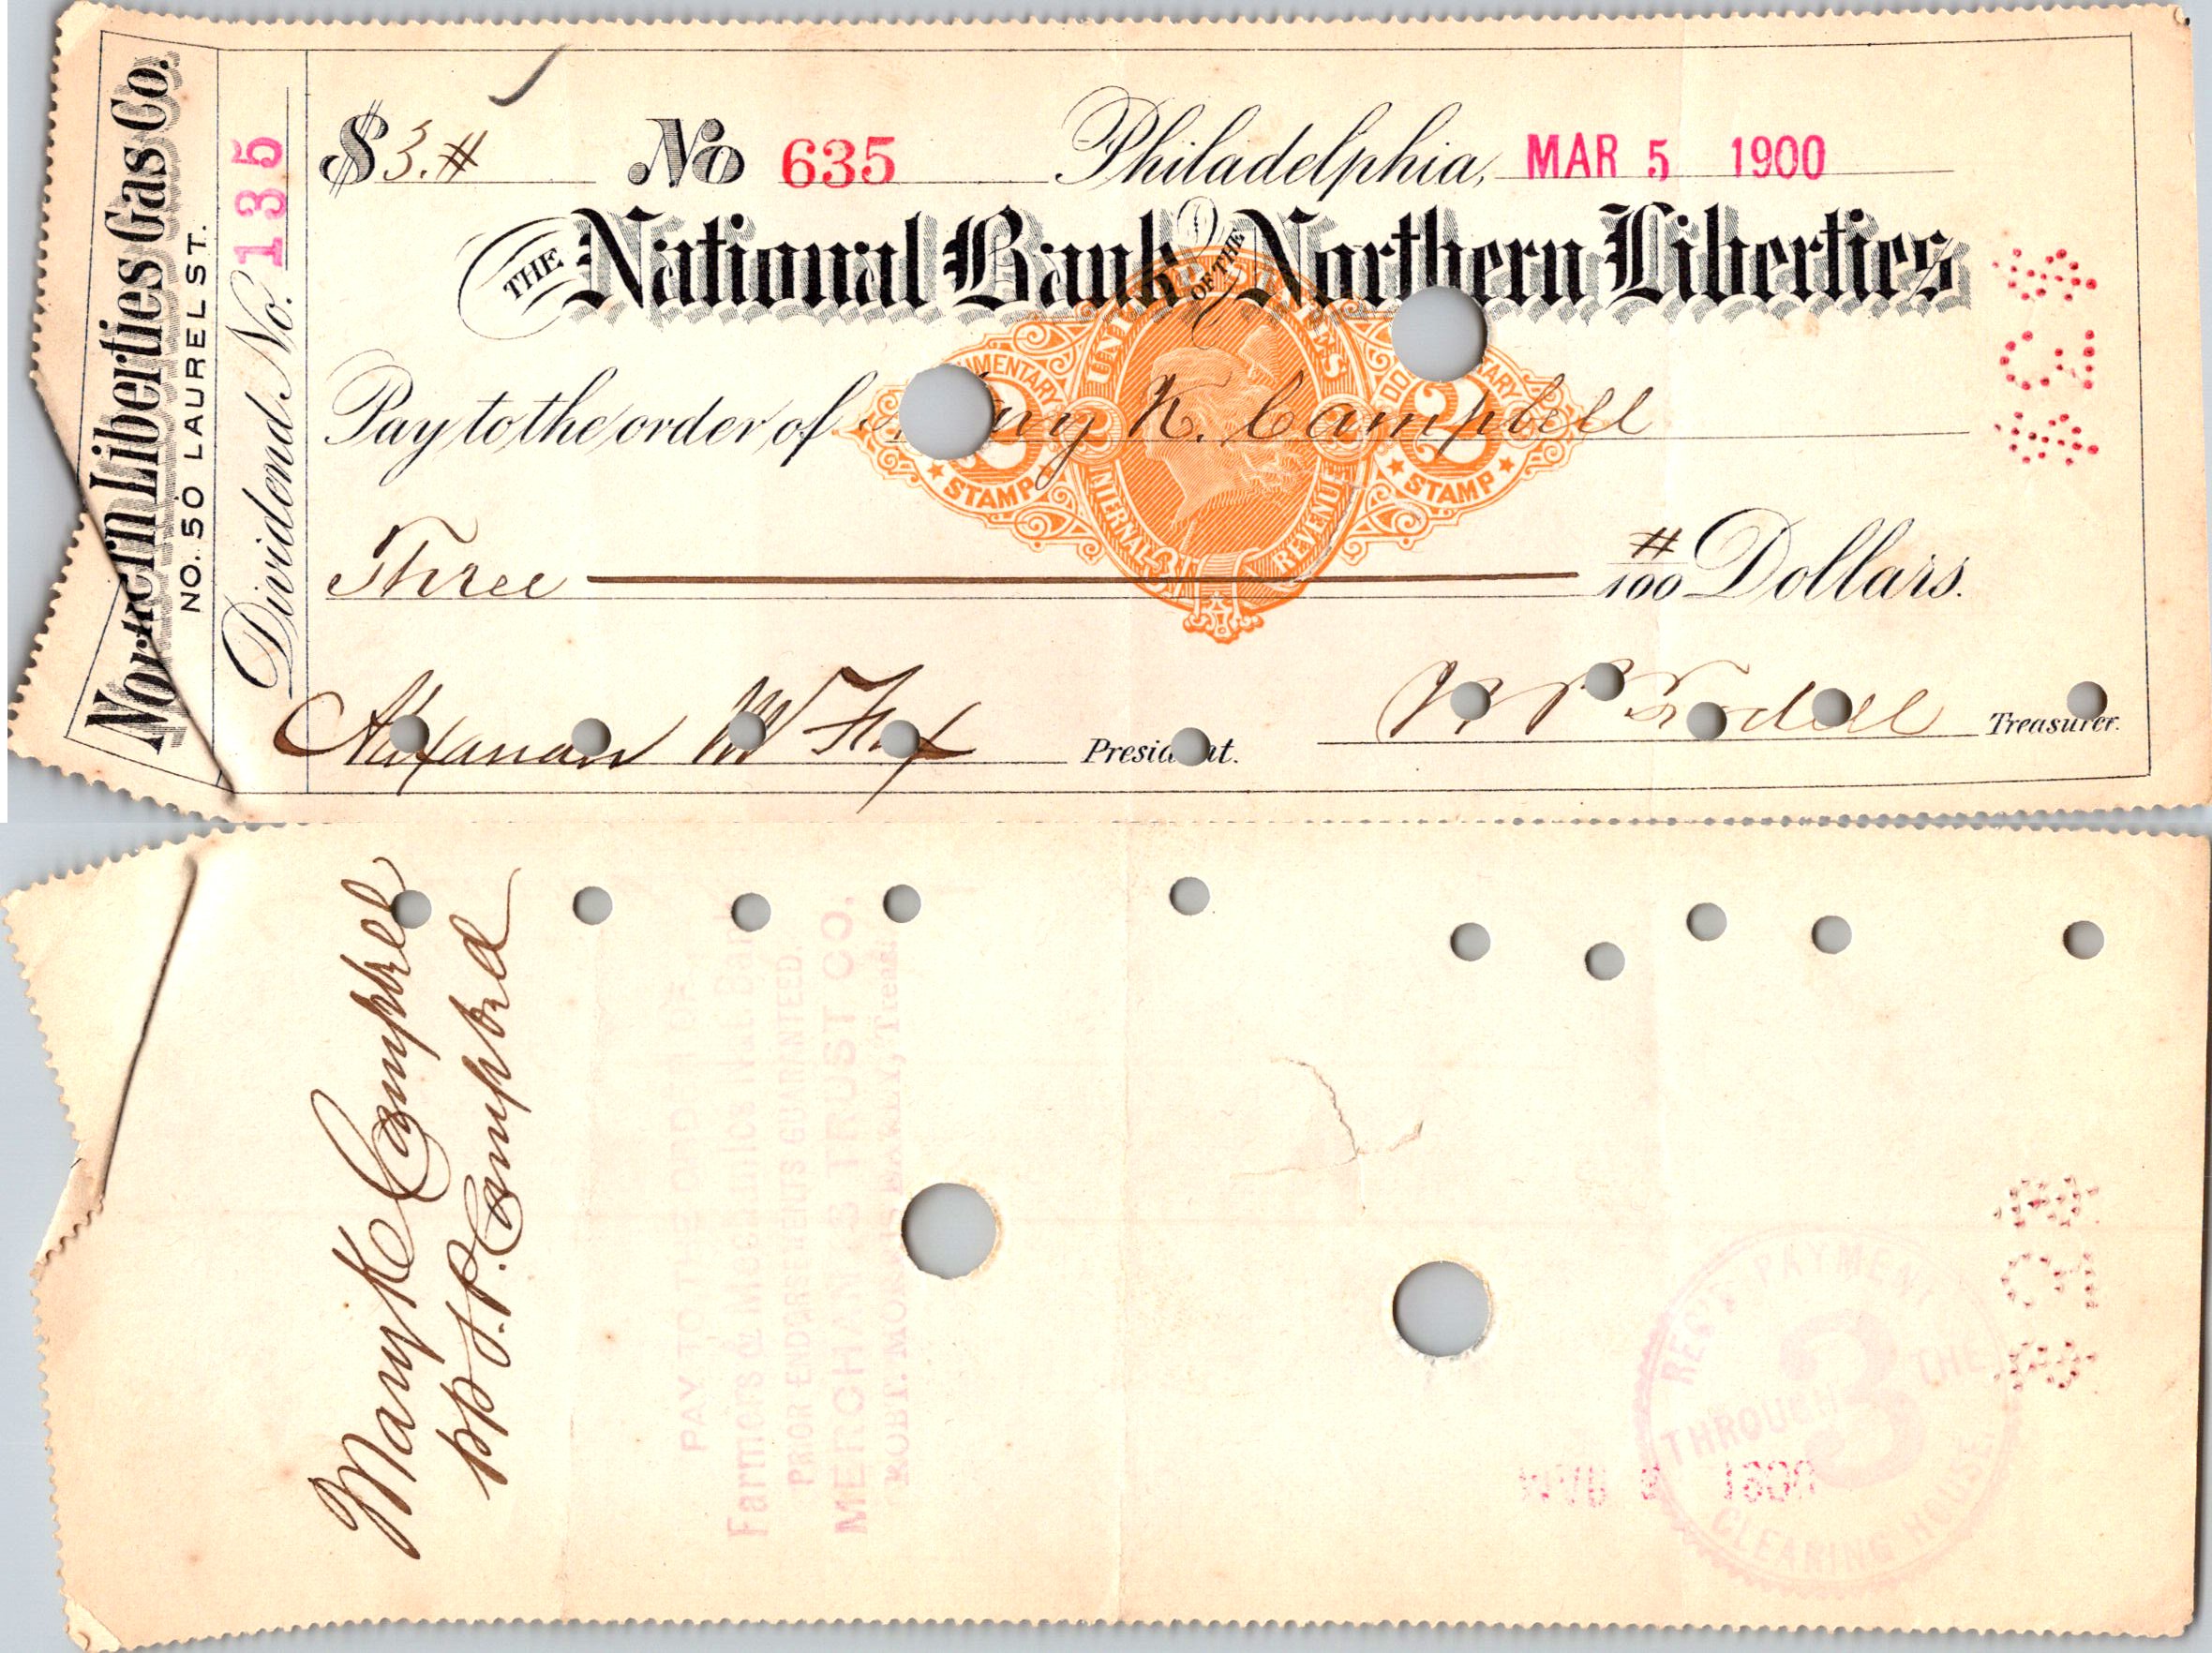 Northern Liberties Gas Co.
NO. 50 LAUREL ST.
Dividend No. 135
$3.# No 635 Philadelphia, MAR 5 1900
THE National Bank OF THE Northern Liberties
Pay to the order of Mary K. Campbell
UNITED STATES
INTERNAL REVENUE
DOCUMENTARY
2
STAMP
DOCUMENTARY
2
STAMP
Three # /100 Dollars.
President.
Treasurer.
Mary K Campbell
pp J. P. Campbell
PAY TO THE ORDER OF
Farmers & Mechanics Nat. Bank
PRIOR ENDORSEMENTS GUARANTEED.
TRUST CO.
REC'D PAYMENT
THROUGH THE
3
CLEARING HOUSE